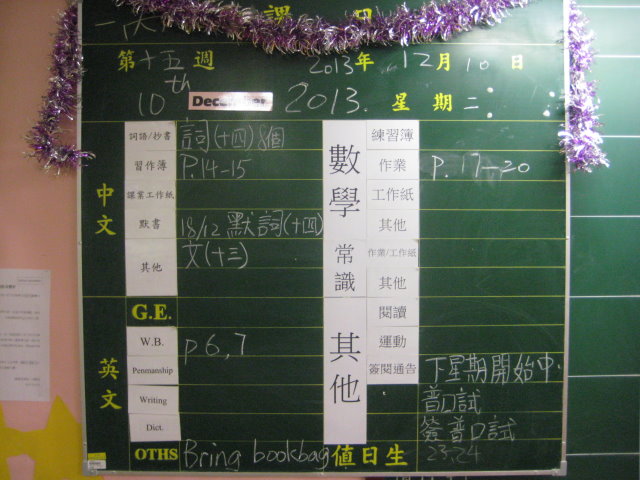 課 日
第十五週 2013年 12月10日
10th December 2013. 星期二
中文
詞語/抄書 詞(十四)8個
習作簿 P.14-15
課業工作紙
默書 18/12 默詞(十四)
其他 文(十三)
英文
G.E.
W.B. p 6,7
Penmanship
Writing
Dict.
OTHS Bring bookbag
數學
練習簿
作業 p. 17-20
工作紙
其他
常識
作業/工作紙
其他
其他
閱讀
運動
簽閱通告 下星期開始中.
普口試
簽普口試
值日生 23,24